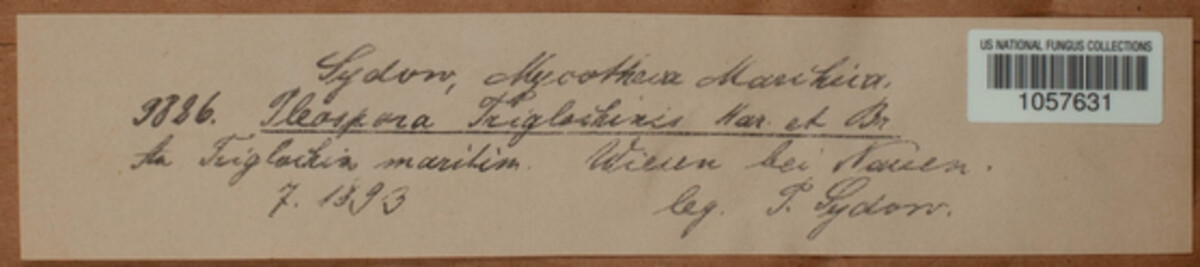 Sydow, Mycotheca Marchica.
US NATIONAL FUNGUS COLLECTIONS
1057631
9886. Pleospora Triglochinis Har. et Br
An Triglochin maritim. Wiesen bei Nauen.
7. 1893 leg. P. Sydow.